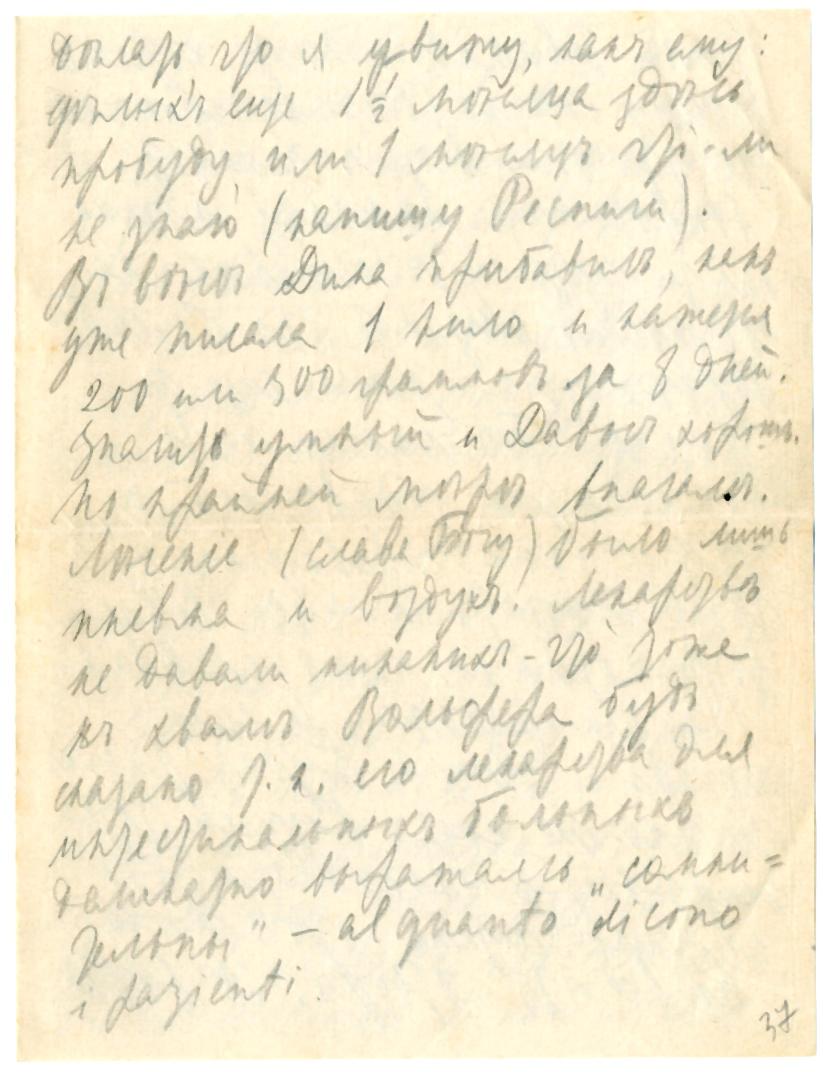 что я увижу, какъ ему:
еще 1½ мѣсяца здѣсь
пробуду, или 1 мѣсяцъ что-ли
не знаю (напишу Респиги).
Въ вѣсѣ Дина прибавила, какъ
уже писала 1 кило и
200 или 300 граммовъ за 8 дней.
Значитъ и Давосъ хорошъ.
По крайней мѣрѣ вначалѣ.
Лѣченіе (слава Богу) было лишь
и воздухъ. Лекарствъ
не давали никакихъ - что тоже
къ хвалѣ Вольфера будь
сказано т. к. его лекарства для
интестинальныхъ больныхъ
выражаясь „сомни=
тельны" – alquanto dicono
i pazienti.
37